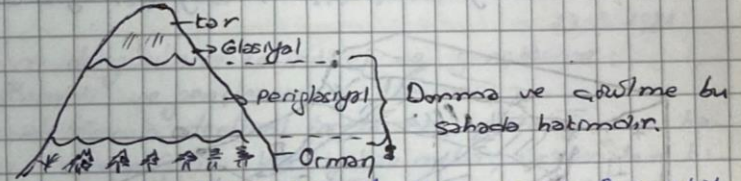 kar
Glasiyal
Periglasiyal
Donma ve çözülme bu
sahada hakimdir.
Orman